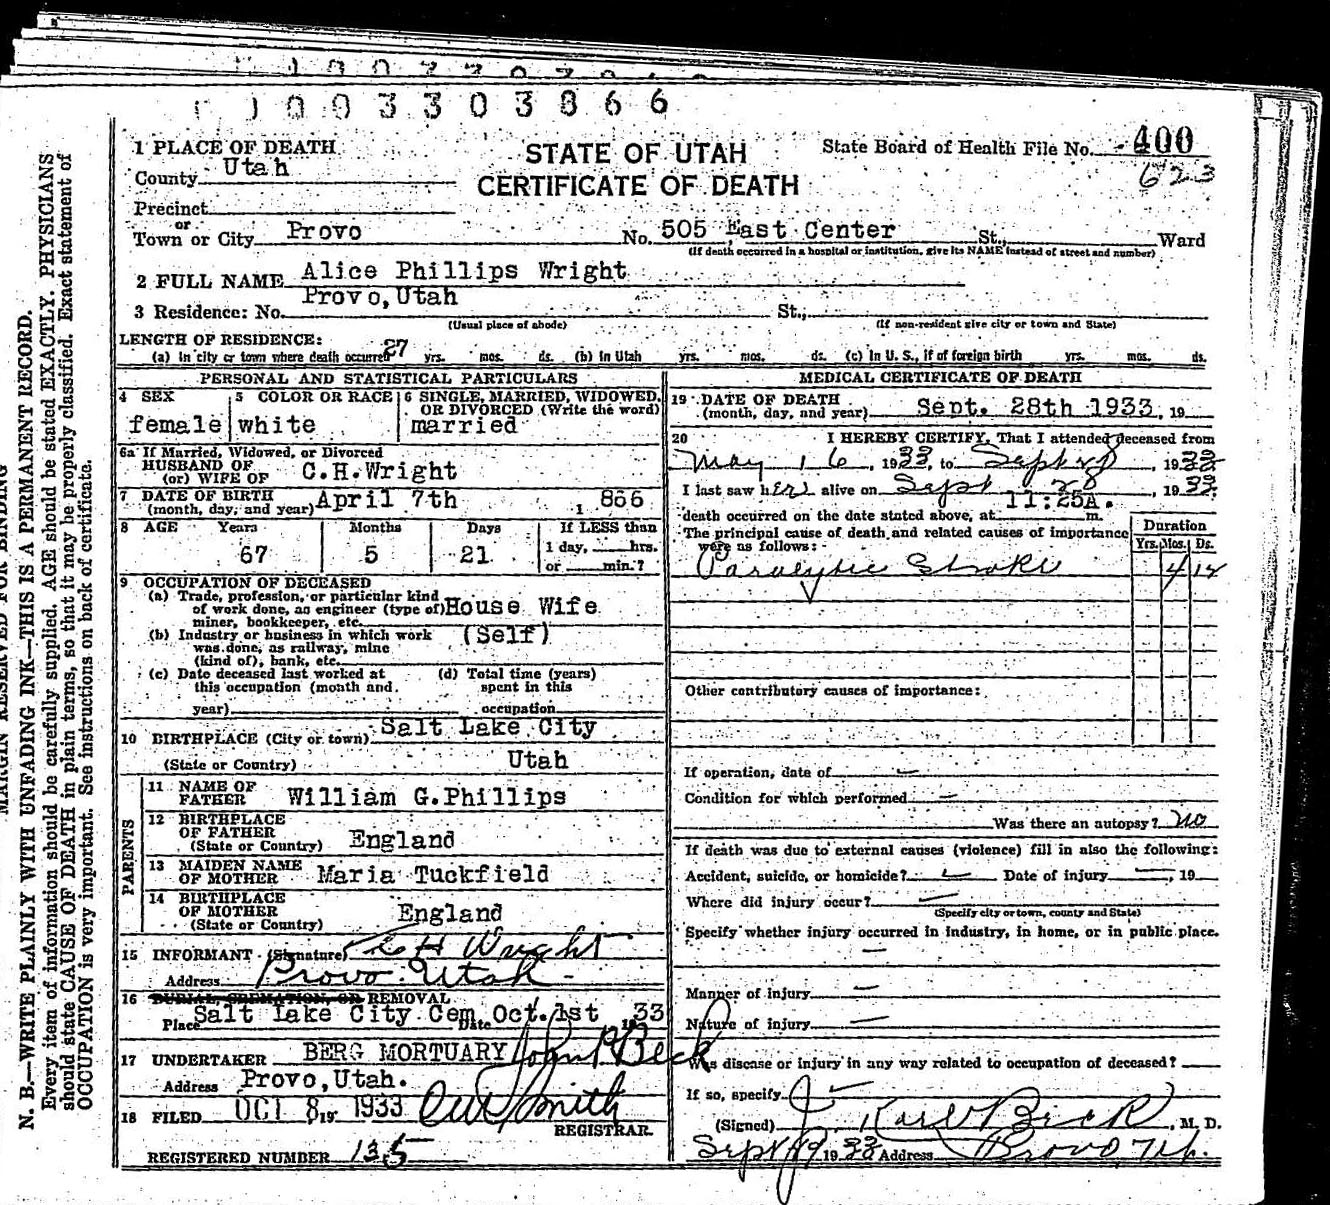 1003303866
1 PLACE OF DEATH
County Utah
STATE OF UTAH
CERTIFICATE OF DEATH
State Board of Health File No. 400
623
Precinct
or
Town or City Provo No. 505 East Center St., Ward
(If death occurred in a hospital or institution, give its NAME instead of street and number)
2 FULL NAME Alice Phillips Wright
3 Residence: No. Provo, Utah St.,
(Usual place of abode) (If non-resident give city or town and State)
LENGTH OF RESIDENCE:
(a) in city or town where death occurred 27 yrs. mos. ds. (b) in Utah yrs. mos. ds. (c) in U. S., if of foreign birth yrs. mos. ds.
PERSONAL AND STATISTICAL PARTICULARS
4 SEX female
5 COLOR OR RACE white
6 SINGLE, MARRIED, WIDOWED, OR DIVORCED (Write the word) married
6a If Married, Widowed, or Divorced
HUSBAND OF
(or) WIFE OF C.H.Wright
7 DATE OF BIRTH
(month, day, and year) April 7th 1866
8 AGE Years Months Days If LESS than
67 5 21 1 day, hrs.
or min.?
9 OCCUPATION OF DECEASED
(a) Trade, profession, or particular kind
of work done, as engineer (type of) House Wife
miner, bookkeeper, etc.
(b) Industry or business in which work (Self)
was done, as railway, mine
(kind of), bank, etc.
(c) Date deceased last worked at (d) Total time (years)
this occupation (month and spent in this
year) occupation
10 BIRTHPLACE (City or town) Salt Lake City
(State or Country) Utah
PARENTS
11 NAME OF
FATHER William G.Phillips
12 BIRTHPLACE
OF FATHER
(State or Country) England
13 MAIDEN NAME
OF MOTHER Maria Tuckfield
14 BIRTHPLACE
OF MOTHER
(State or Country) England
15 INFORMANT (Signature) C H Wright
Address Provo Utah
16 BURIAL, CREMATION, OR REMOVAL
Place Salt Lake City Cem. Date Oct. 1st 1933
17 UNDERTAKER BERG MORTUARY John R Beck
Address Provo, Utah.
18 FILED OCT 8, 19 1933 Smith
REGISTRAR.
REGISTERED NUMBER 135
MEDICAL CERTIFICATE OF DEATH
19 DATE OF DEATH
(month, day, and year) Sept. 28th 1933, 19
20 I HEREBY CERTIFY, That I attended deceased from
May 16, 1933, to Sept 28, 1933
I last saw her alive on Sept 28, 1933
death occurred on the date stated above, at 11:25A. m.
The principal cause of death and related causes of importance
were as follows:
Duration
Yrs. Mos. Ds.
Paralytic Stroke 4 12
Other contributory causes of importance:
If operation, date of
Condition for which performed
Was there an autopsy? no
If death was due to external causes (violence) fill in also the following:
Accident, suicide, or homicide? Date of injury , 19
Where did injury occur?
(Specify city or town, county and State)
Specify whether injury occurred in industry, in home, or in public place.
Manner of injury
Nature of injury
Was disease or injury in any way related to occupation of deceased?
If so, specify
(Signed) J. Karl Beck, M. D.
Sept 1933 Address Provo Ut.
N. B.—WRITE PLAINLY WITH UNFADING INK—THIS IS A PERMANENT RECORD.
Every item of information should be carefully supplied. AGE should be stated EXACTLY. PHYSICIANS
should state CAUSE OF DEATH in plain terms, so that it may be properly classified. Exact statement of
OCCUPATION is very important. See instructions on back of certificate.
MARGIN RESERVED FOR BINDING